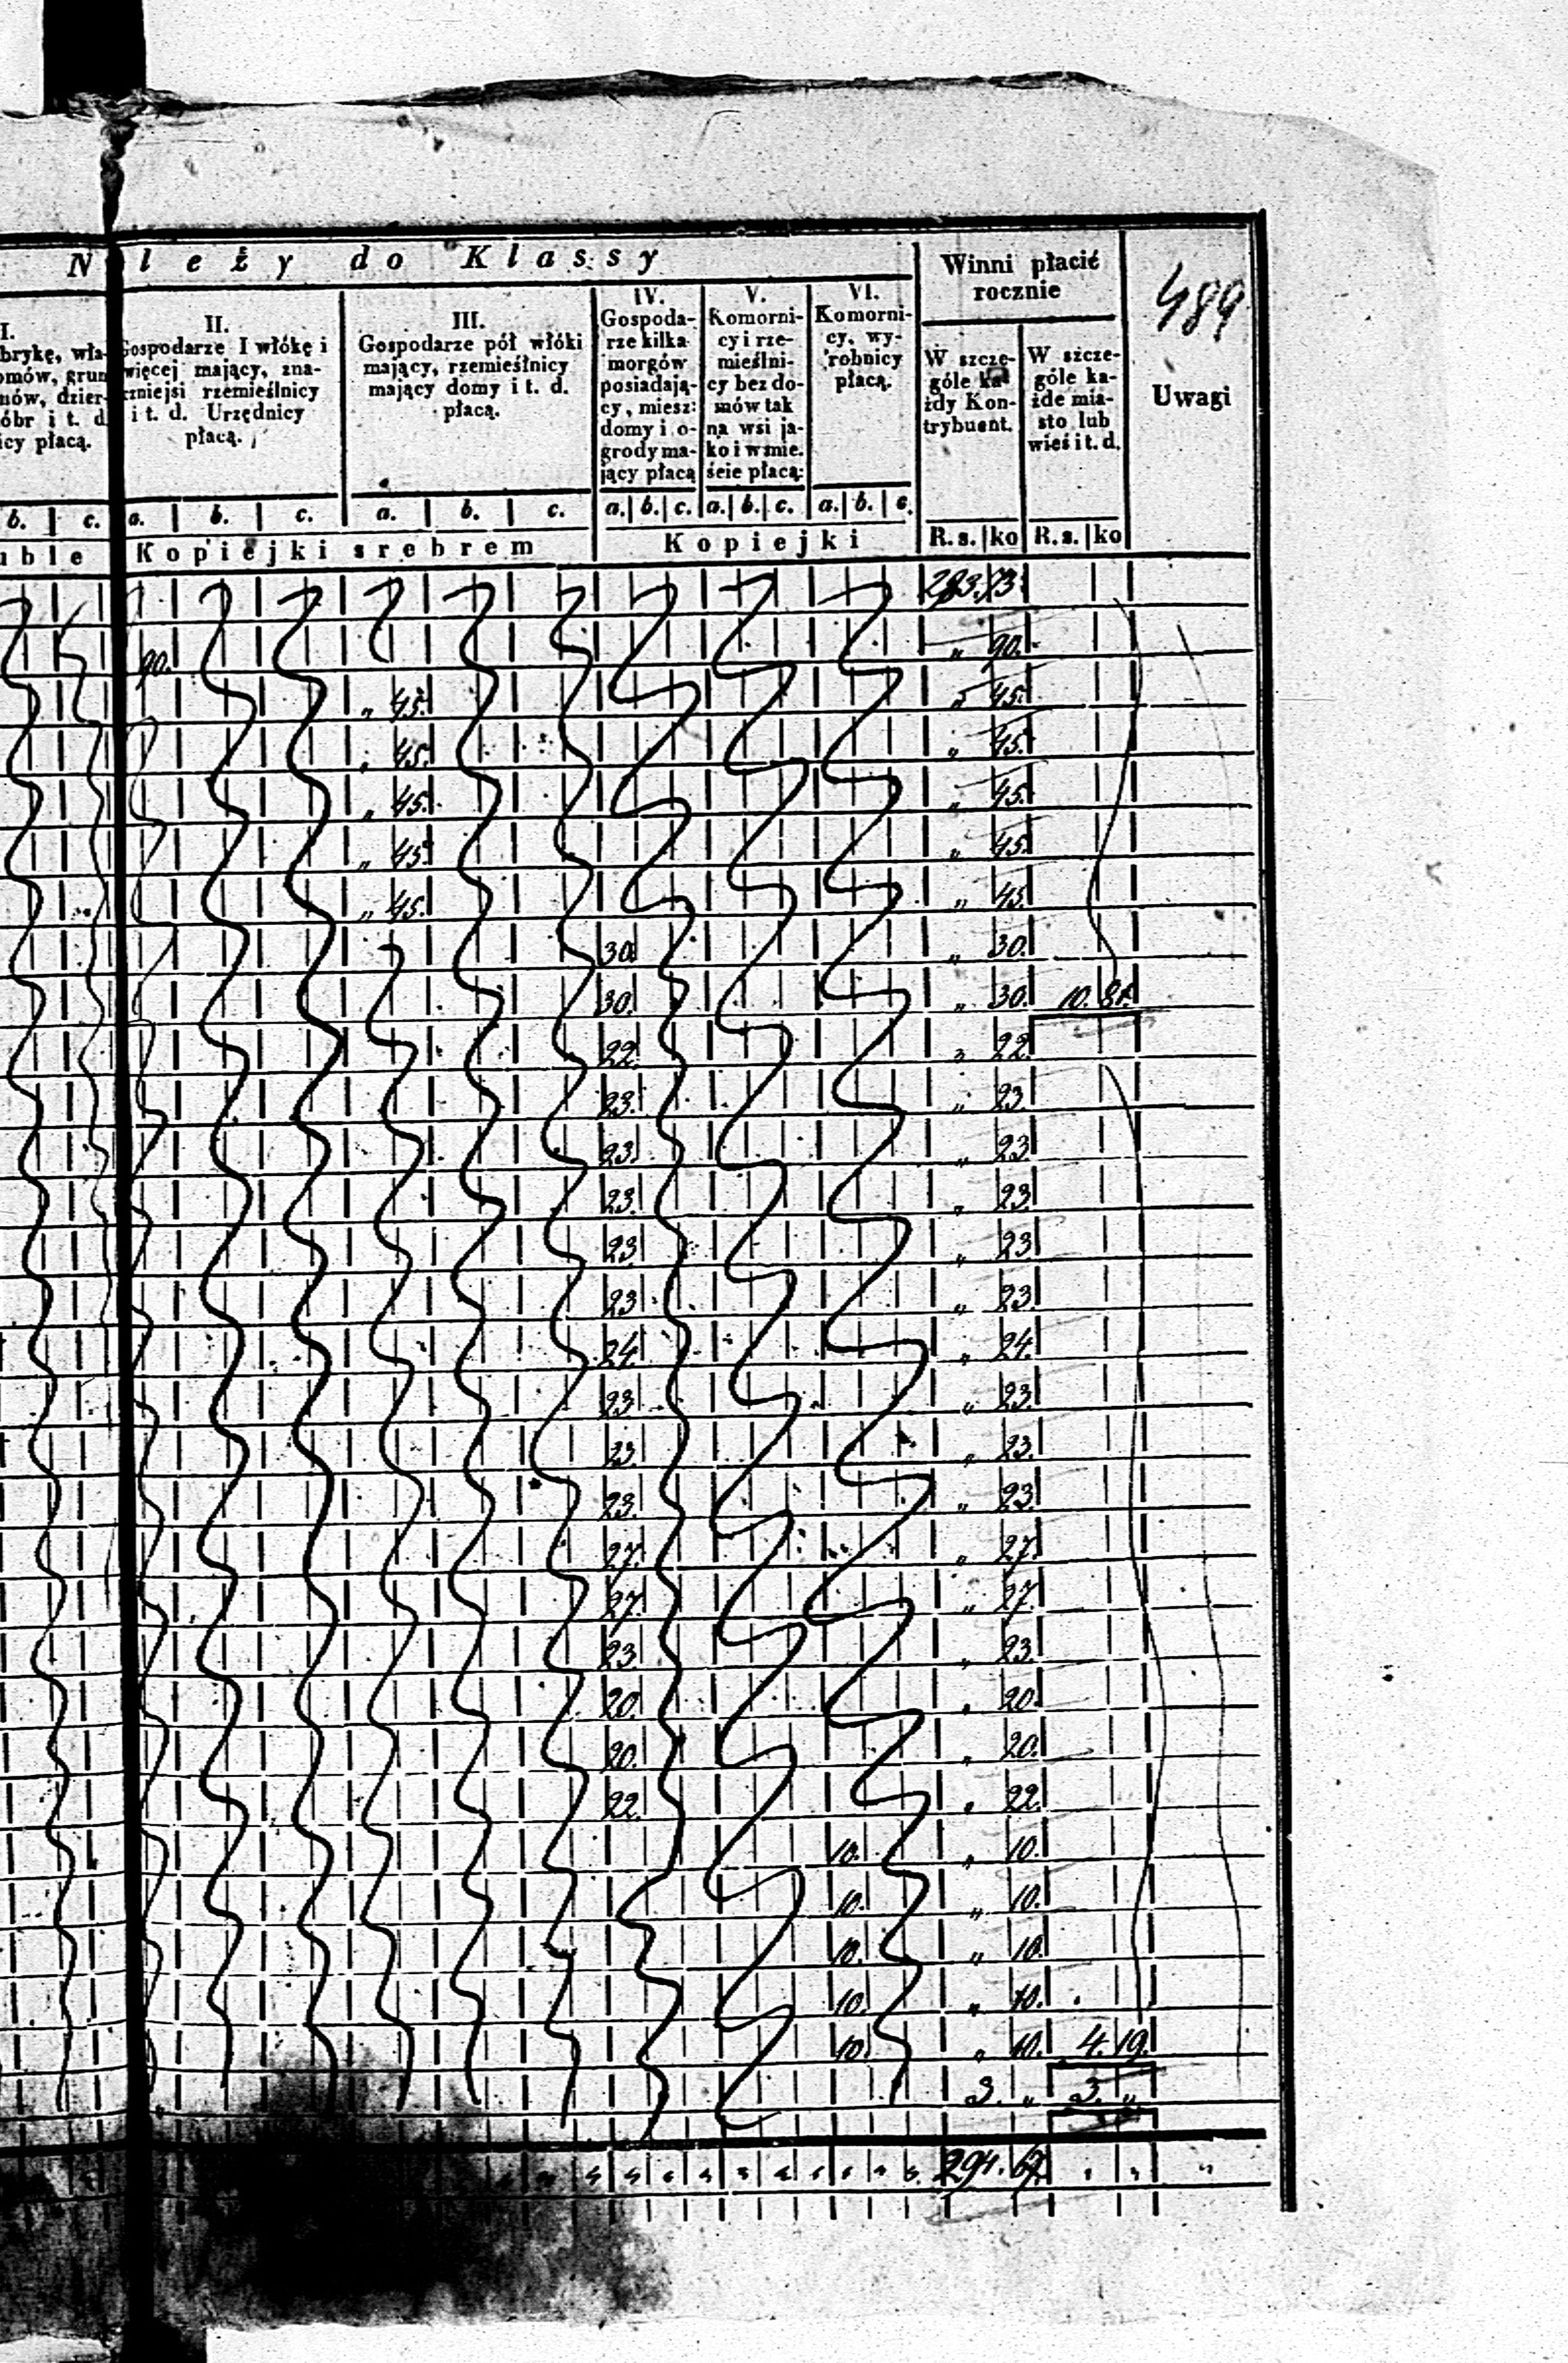 489
N leży do Klassy
Winni płacić
rocznie
Uwagi
I.
brykę, wła-
omów, grun
nów, dzier-
óbr i t. d
icy płacą.
II.
Gospodarze I włókę i
więcej mający, zna-
czniejsi rzemieślnicy
i t. d. Urzędnicy
płacą.
III.
Gospodarze pół włóki
mający, rzemieślnicy
mający domy i t. d.
płacą.
IV.
Gospoda-
rze kilka
morgów
posiadają-
cy, miesz:
domy i o-
grody ma-
jący płacą
V.
Komorni-
cy i rze-
mieślni-
cy bez do-
mów tak
na wsi ja-
ko i w mie.
ście płacą:
VI.
Komorni-
cy, wy-
robnicy
płacą.
W szcze-
góle ka-
żdy Kon-
trybuent.
W szcze-
góle ka-
żde mia-
sto lub
wieś i t. d.
b. c. a. b. c. a. b. c. a. b. c. a. b. c. a. b. c.
uble Kopiejki srebrem Kopiejki R.s. ko R.s. ko
283. 73
90. „ 90.
„ 45. „ 45.
„ 45. „ 45.
„ 45. „ 45.
„ 45 „ 45.
„ 45. „ 45.
30. „ 30.
30. „ 30. 10.
22. „ 22
23. „ 23.
23. „ 23
23. „ 23
23 „ 23
23 „ 23.
24. „ 24.
23 „ 23
23. „ 23.
23. „ 23
27. „ 27.
27. „ 27.
23. „ 23.
20. „ 20.
20. „ 20.
22. „ 22.
10. „ 10.
10. „ 10.
10. „ 10.
10. „ 10.
10. „ 10. 4. 19.
3. „ 3. „
294.